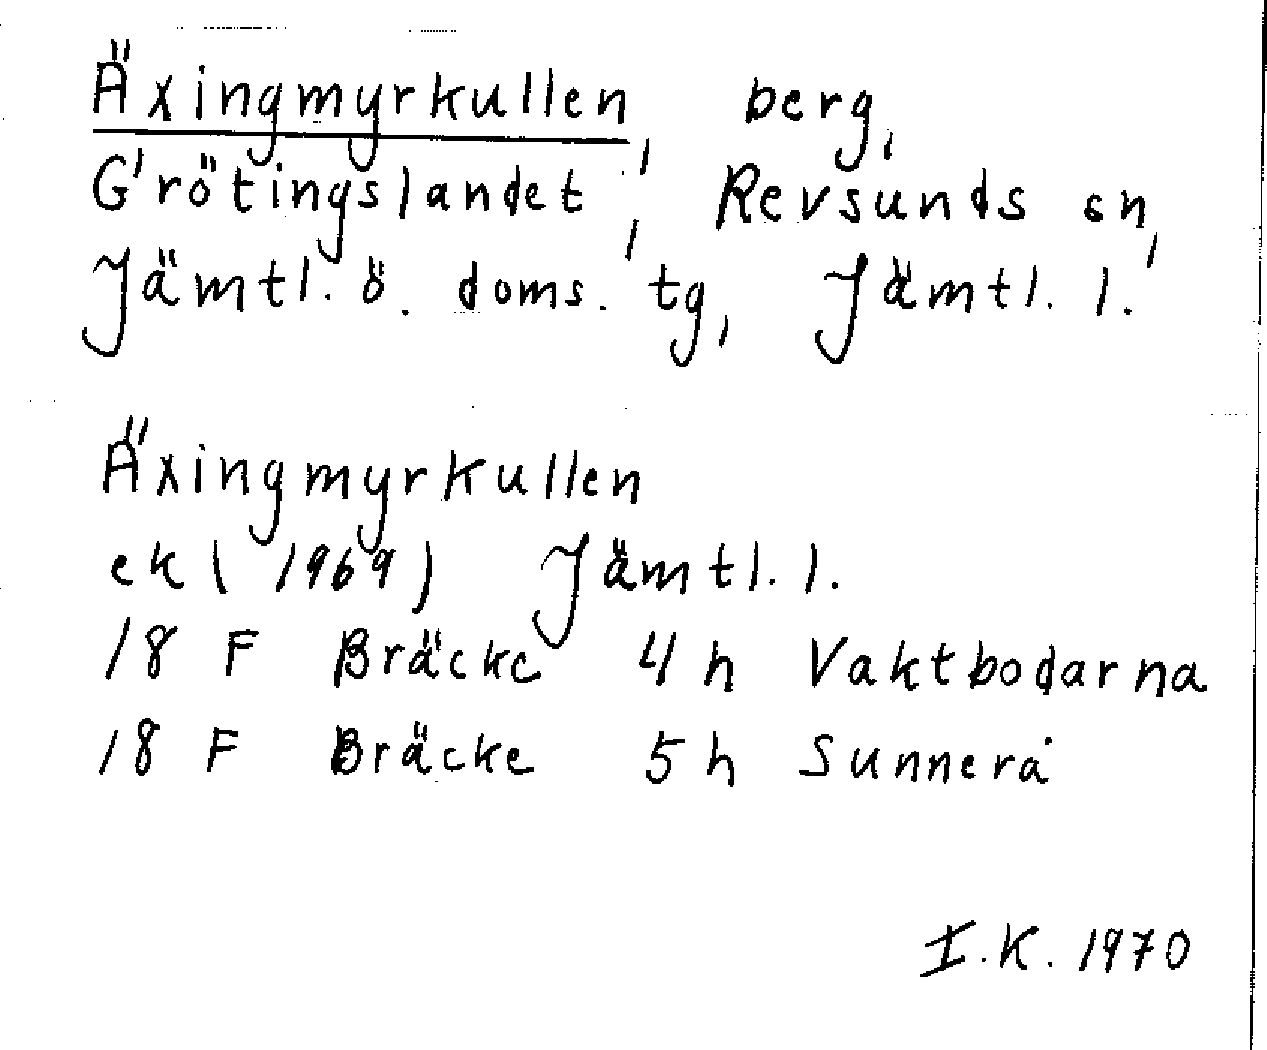 Äxingmyrkullen, berg,
Grötingslandet, Revsunds sn,
Jämtl. ö. doms. tg, Jämtl. l.
Äxingmyrkullen
ek (1969) Jämtl. l.
18 F Bräcke 4 h Vaktbodarna
18 F Bräcke 5 h Sunnerå
I.K. 1970